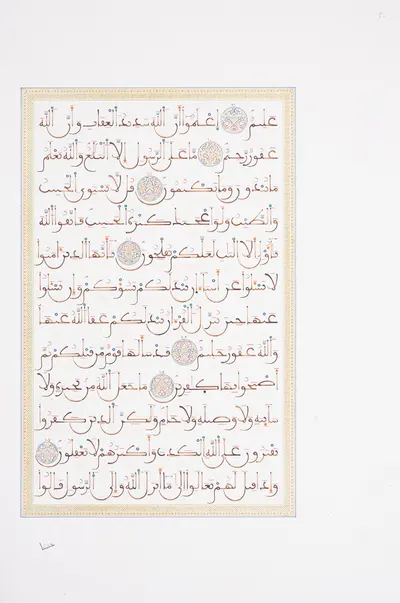 عليم اعلموا أن الله شديد العقاب وأن الله
غفور رحيم ما على الرسول إلا البلغ والله يعلم
ما تبدون وما تكتمون قل لا يستوي الخبيث
والطيب ولو أعجبك كثرة الخبيث فاتقوا الله
يأولي الألبب لعلكم تفلحون يأيها الذين ءامنوا
لا تسئلوا عن أشياء إن تبد لكم تسؤكم وإن تسئلوا
عنها حين ينزل القرءان تبد لكم عفا الله عنها
والله غفور حليم قد سألها قوم من قبلكم ثم
أصبحوا بها كفرين ما جعل الله من بحيرة ولا
سائبة ولا وصيلة ولا حام ولكن الذين كفروا
يفترون على الله الكذب وأكثرهم لا يعقلون
وإذا قيل لهم تعالوا إلى ما أنزل الله وإلى الرسول قالوا
حسبنا